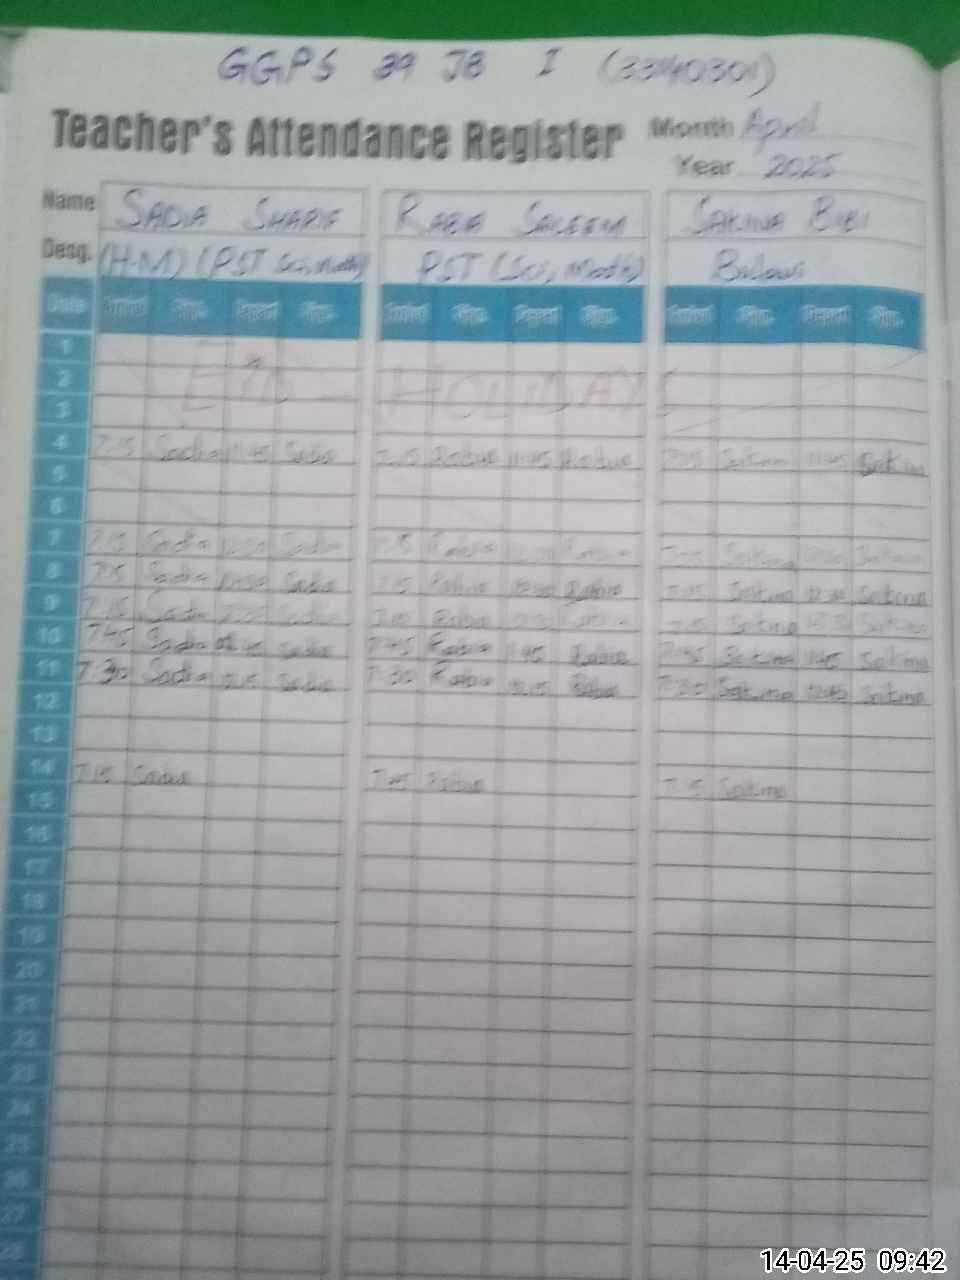 GGPS 39 JB I (33140301)
Teacher's Attendance Register Month April
Year 2025
Name SADIA SHARIF RABIA SALEEM SAKINA BIBI
Desg. (H.M) (PST Sci, Math) PST (Sci, Math)
Date Arrival Sign. Depart Sign. Arrival Sign. Depart Sign. Arrival Sign. Depart Sign.
1
2 EID HOLIDAYS
3
4 7:15 Sadia 11:45 Sadia 7:15 Rabia 11:45 Rabia 7:15 Sakina 11:45 Sakina
5
6
7 7:15 Sadia Sadia 7:15 Rabia Rabia 7:15 Sakina Sakina
8 7:15 Sadia Sadia 7:15 Rabia Rabia 7:15 Sakina Sakina
9 7:15 Sadia Sadia Rabia Rabia 7:15 Sakina Sakina
10 7:45 Sadia Sadia 7:45 Rabia 11:45 Rabia 7:45 Sakina 11:45 Sakina
11 7:30 Sadia Sadia 7:30 Rabia Rabia 7:30 Sakina Sakina
12
13
14 7:15 Sadia Rabia 7:15 Sakina
15
16
17
18
19
20
21
22
23
24
25
26
27
28
14-04-25 09:42